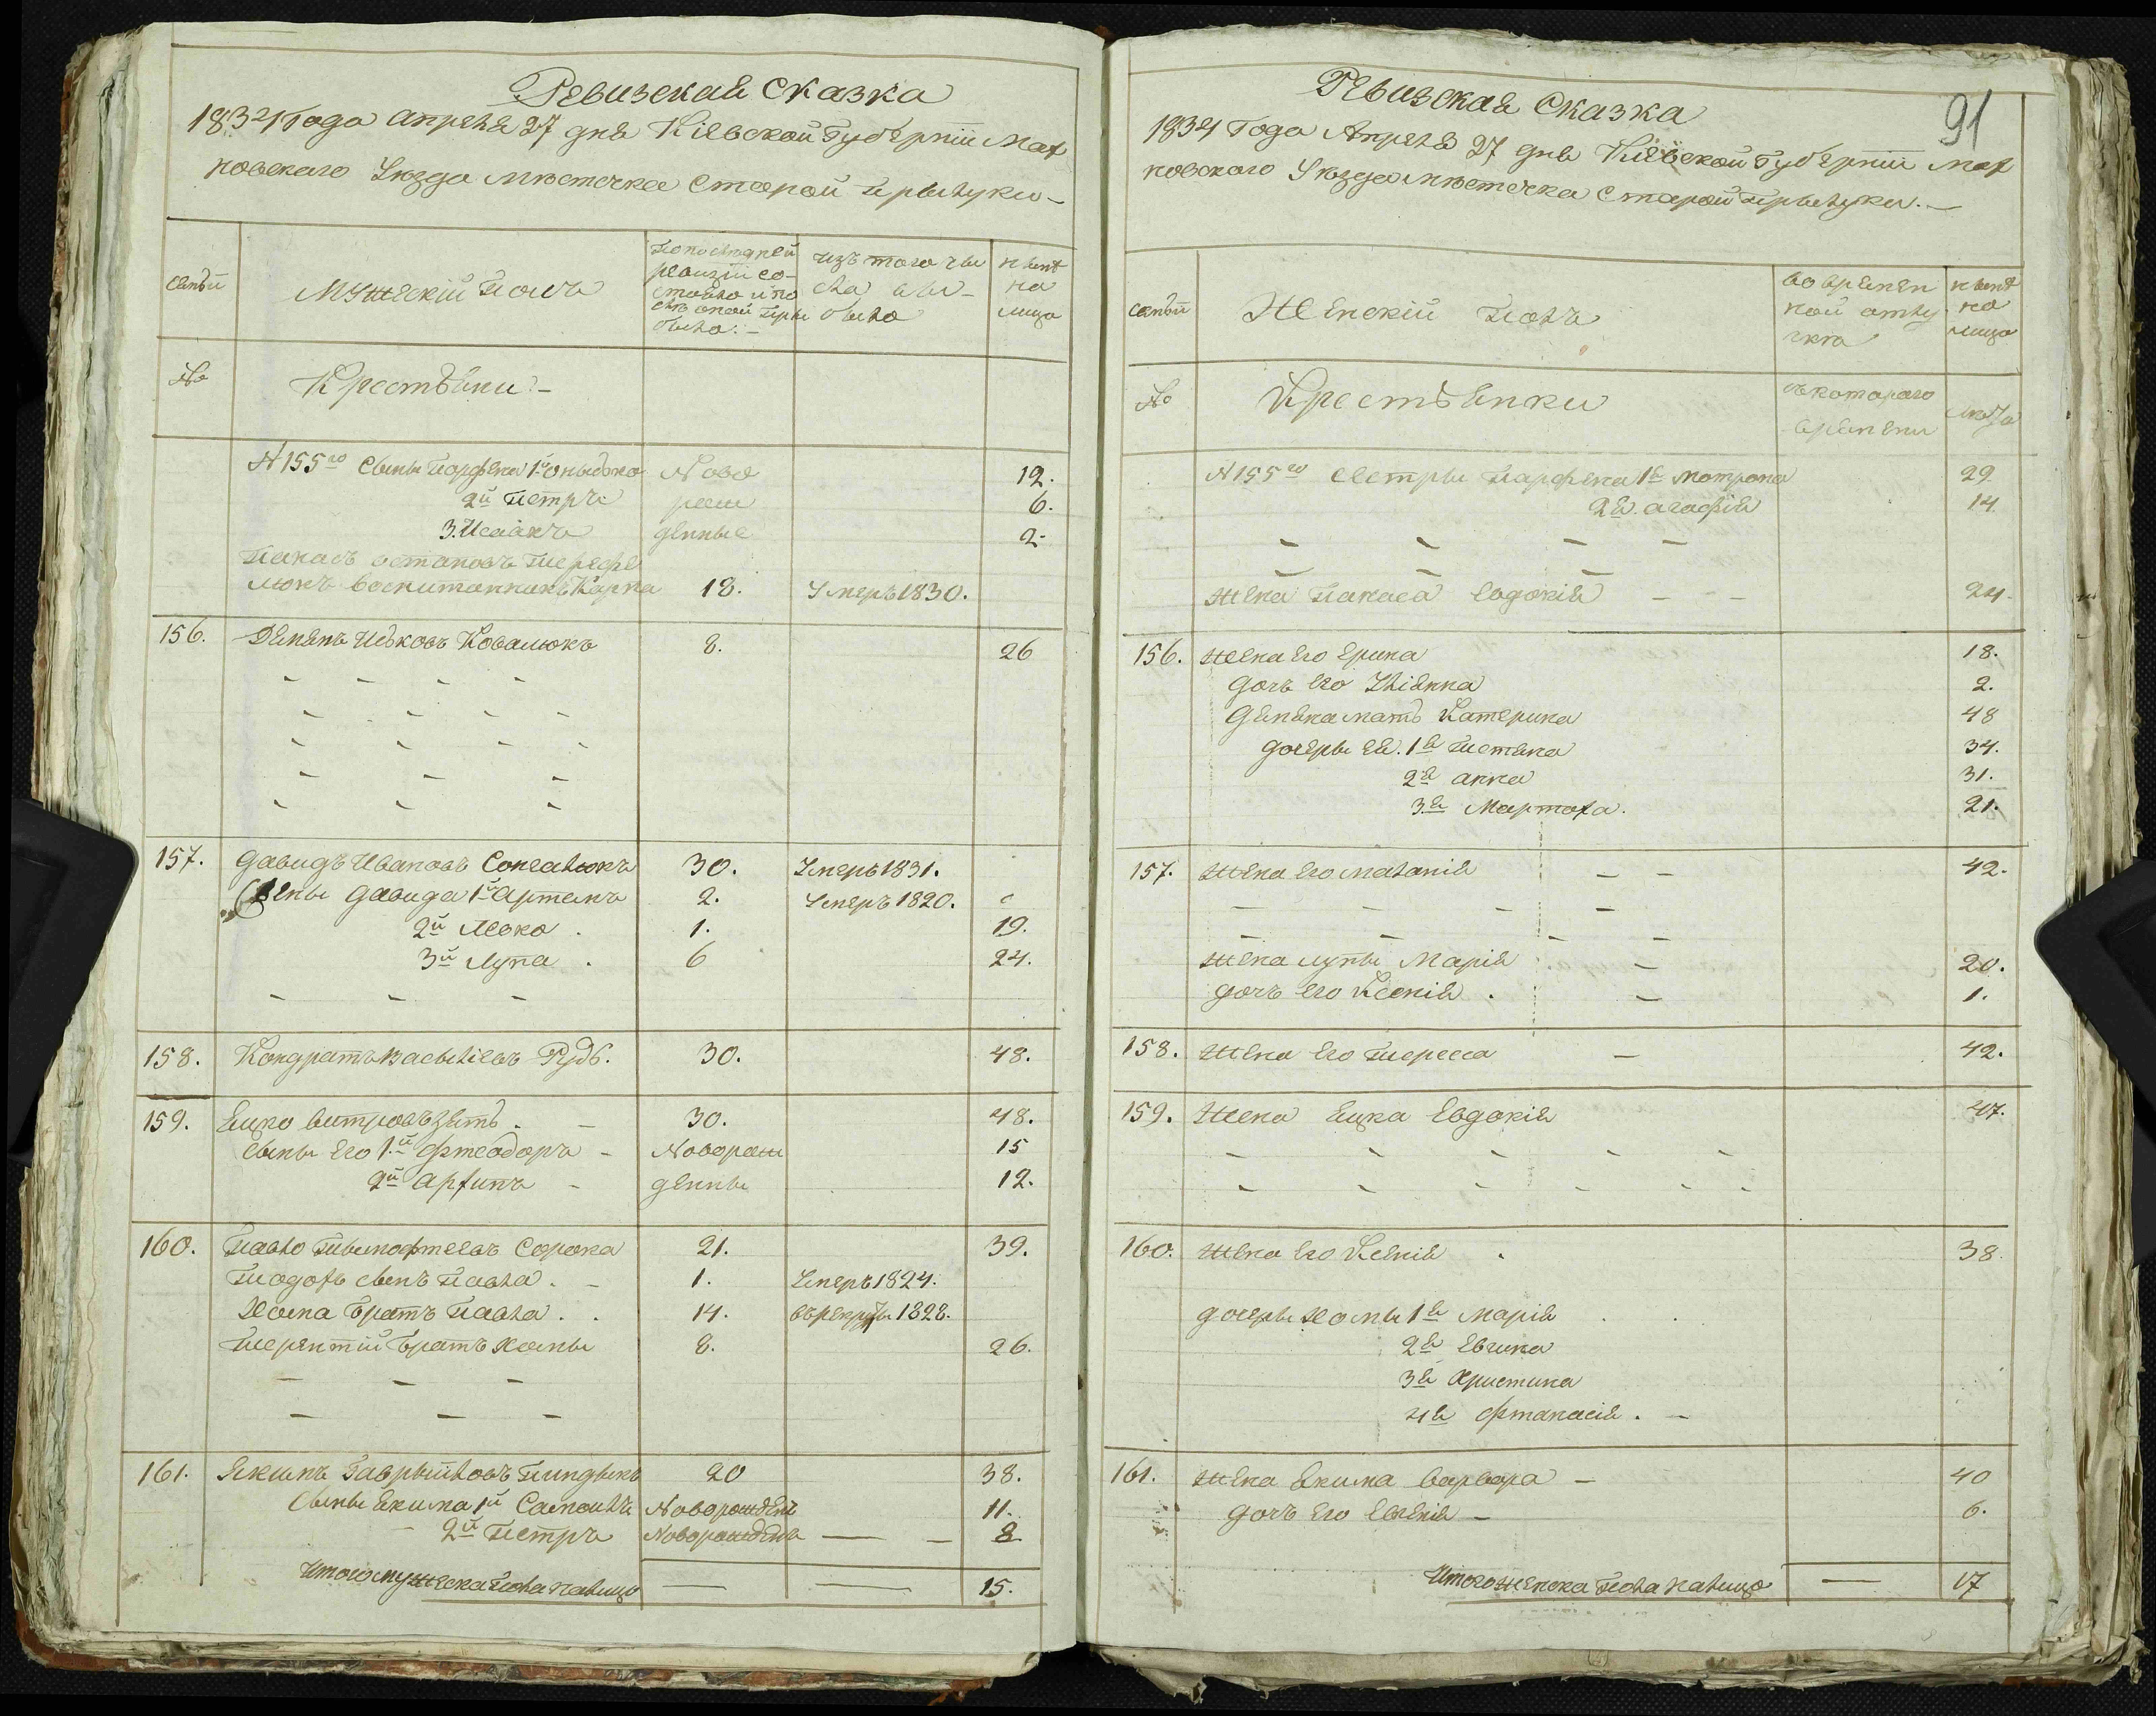 Ревизская Сказка
1834 Года Апреля 27 дня Кіевской Губерніи Мах
новскаго Уезда местечка Старой Прылуки
семьи
Мужескій Полъ
По последней
ревизіи со-
стояло и по
сле оной пры
было.
изъ того чи
сла вы-
было
ныне
на
лицо
№
Крестьяни
№ 155го Сыны Парфена 1й
Ново 12.
2й Петръ рож 6.
3. Исаакъ денные 2.
воспитанникъ Карпа 18. Умеръ 1830.
156. Деменъ Ивковъ Ковалюкъ 8. 26
157. Давидъ Ивановъ 30. Умеръ 1831.
Сыны Давида 1й Артемъ 2. Умеръ 1820.
2й Левко . 1. 19.
3й Лупа . 6 24.
158. Кондратъ Васылiевъ Рудь. 30. 48.
159. Яцко Витровъ зять. 30. 48.
Сыны Его 1й Фтеодоръ Новорож 15
2й Архипъ денны 12.
160. Павло Тымофтеевъ Сорока 21. 39.
Тиодоръ сынъ Павла. 1. Умеръ 1824.
Хома братъ Павла . . 14. въ рекруты 1828.
Терентiй братъ Хомы 8. 26.
161. Якимъ Гаврыиловъ 20 38.
Сыны Якима 1й Самоилъ Новорожден 11.
2й Петръ Новорожденъ 8
Итого мужеска пола налицо 15.
Ревизская Сказка
91
1834 Года Апреля 27 дня Кіевской Губерніи Мах
новскаго Уезда местечка Старой Прылуки.
семьи
Женскій Полъ
во времен
ной отлу
чке
ныне
на
лицо
№
Крестьянки
съ котораго
времени
лета
№ 155го Сестры Парфена 1я Мотрона 29
2я. Агафiя 14
Жена Панаса Евдокiя 24.
156. Жена Его Ерина 18.
Дочъ Его Улiянна 2.
Демена мать Катерина 48
дочеры Ея. 1я Тистяна 34.
2я Анна 31.
3я Мартоха. 21.
157. Жена Его Маланiя 42.
Жена Лупы Марiя 20.
дочъ Его Ксенiя . 1.
158. Жена Его Тиресса 42.
159. Жена Яцка Евдокiя 47.
160. Жена Его Ксенiя . 38.
дочеры Хомы 1я Марiя
2я Евгина
3я Христина
4я Фтанасiя .
161. Жена Якима Варвара 40
Дочъ Его Евгенiя 6.
Итого женска пола налицо 17